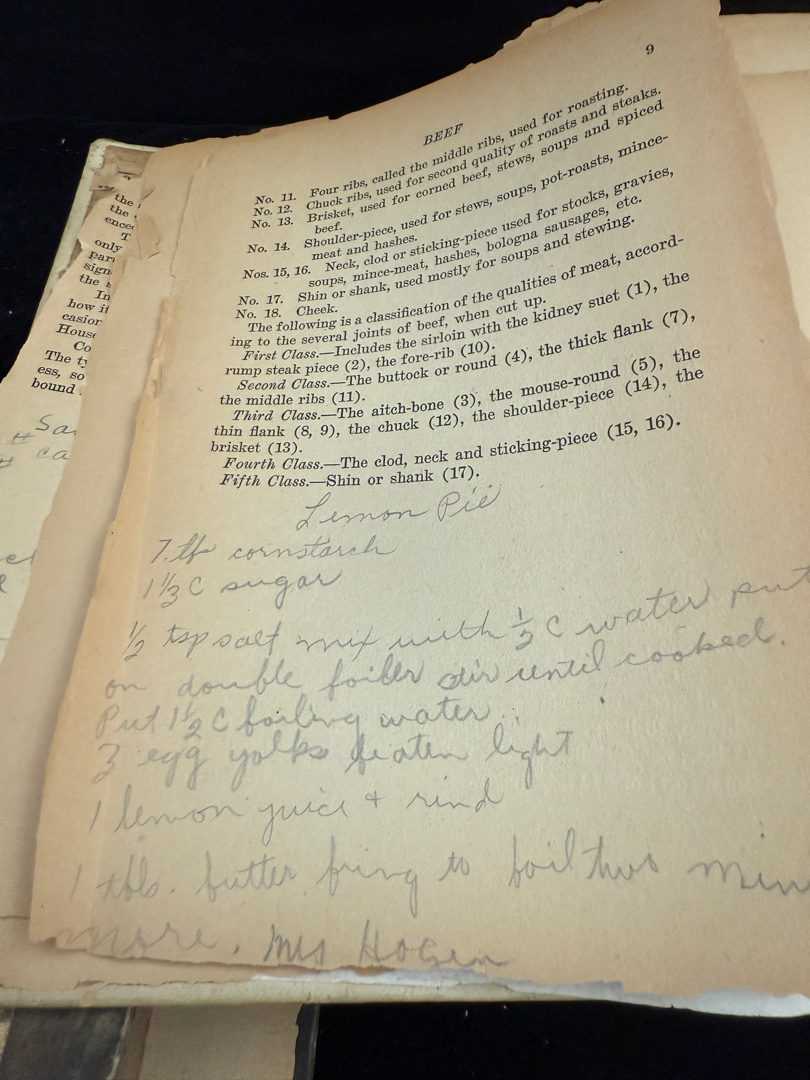 9
BEEF
No. 11. Four ribs, called the middle ribs, used for roasting.
No. 12. Chuck ribs, used for second quality of roasts and steaks.
No. 13. Brisket, used for corned beef, stews, soups and spiced
beef.
No. 14. Shoulder-piece, used for stews, soups, pot-roasts, mince-
meat and hashes.
Nos. 15, 16. Neck, clod or sticking-piece used for stocks, gravies,
soups, mince-meat, hashes, bologna sausages, etc.
No. 17. Shin or shank, used mostly for soups and stewing.
No. 18. Cheek.
The following is a classification of the qualities of meat, accord-
ing to the several joints of beef, when cut up.
First Class.—Includes the sirloin with the kidney suet (1), the
rump steak piece (2), the fore-rib (10).
Second Class.—The buttock or round (4), the thick flank (7),
the middle ribs (11).
Third Class.—The aitch-bone (3), the mouse-round (5), the
thin flank (8, 9), the chuck (12), the shoulder-piece (14), the
brisket (13).
Fourth Class.—The clod, neck and sticking-piece (15, 16).
Fifth Class.—Shin or shank (17).
Lemon Pie
7 tb cornstarch
1 1/3 C sugar
1/2 tsp salt mix with 1/2 C water put
on double boiler stir until cooked.
Put 1 1/2 C boiling water
3 egg yolks beaten light
1 lemon juice + rind
1 tbls. butter bring to boil two min
more. Mrs Hogen
the
the
ence
T
only
par
sign
the
In
how it
casion
House
Co
The ty
ess, so
bound
Sa
ca